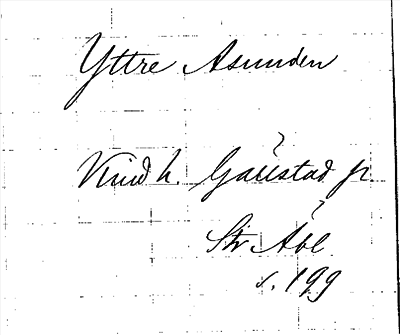 Yttre Asunden
Kind h. Gällstad sr.
Str Äbl
s. 199